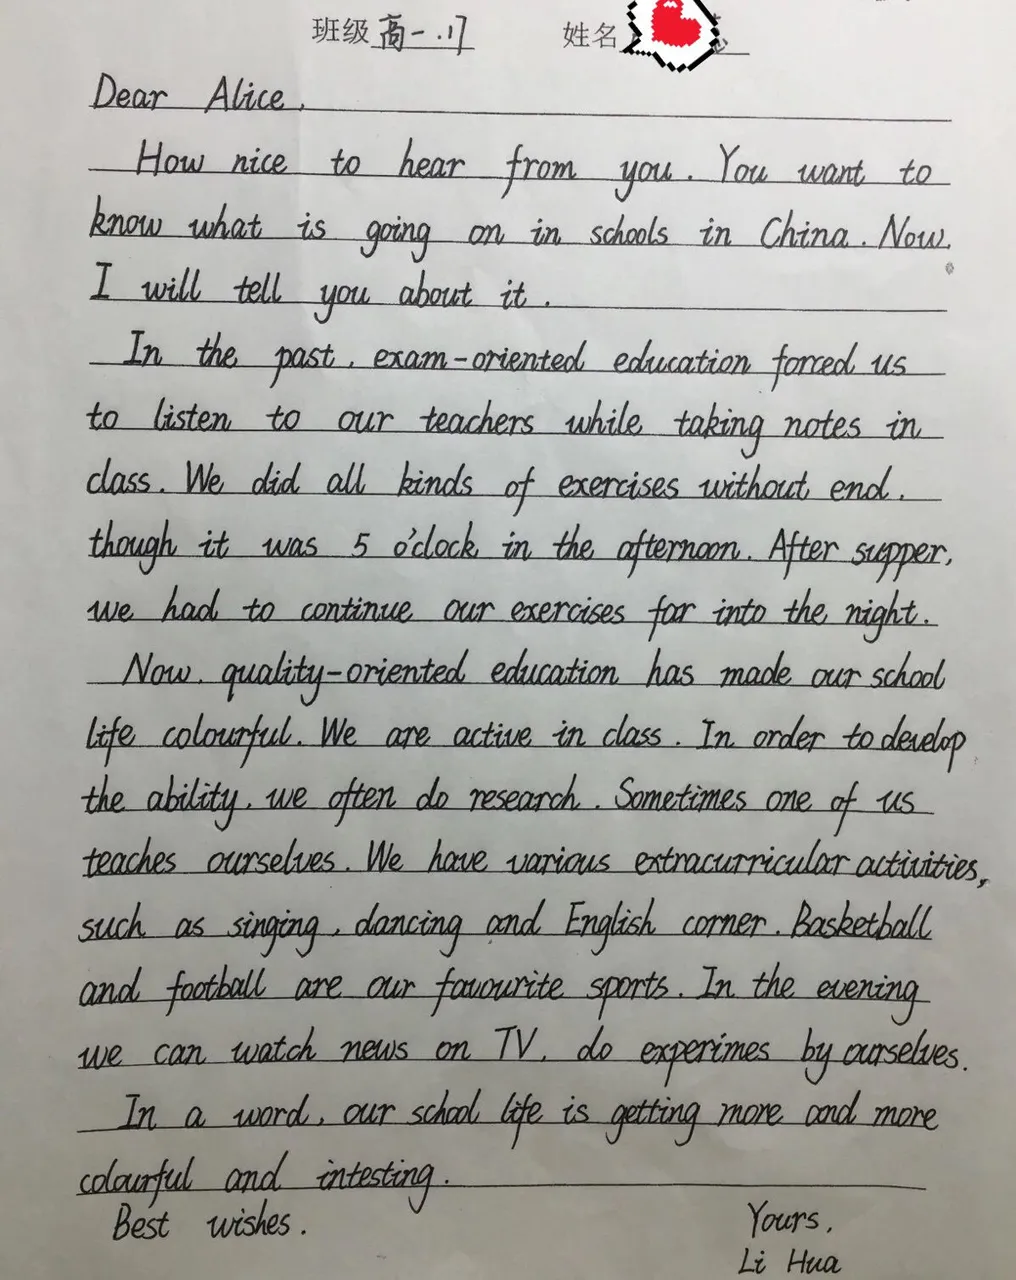 班级 高一.17 姓名
Dear Alice,
How nice to hear from you. You want to
know what is going on in schools in China. Now,
I will tell you about it.
In the past, exam-oriented education forced us
to listen to our teachers while taking notes in
class. We did all kinds of exercises without end,
though it was 5 o'clock in the afternoon. After supper,
we had to continue our exercises far into the night.
Now, quality-oriented education has made our school
life colourful. We are active in class. In order to develop
the ability, we often do research. Sometimes one of us
teaches ourselves. We have various extracurricular activities,
such as singing, dancing and English corner. Basketball
and football are our favourite sports. In the evening
we can watch news on TV, do experimes by ourselves.
In a word, our school life is getting more and more
colourful and intesting.
Best wishes.
Yours,
Li Hua